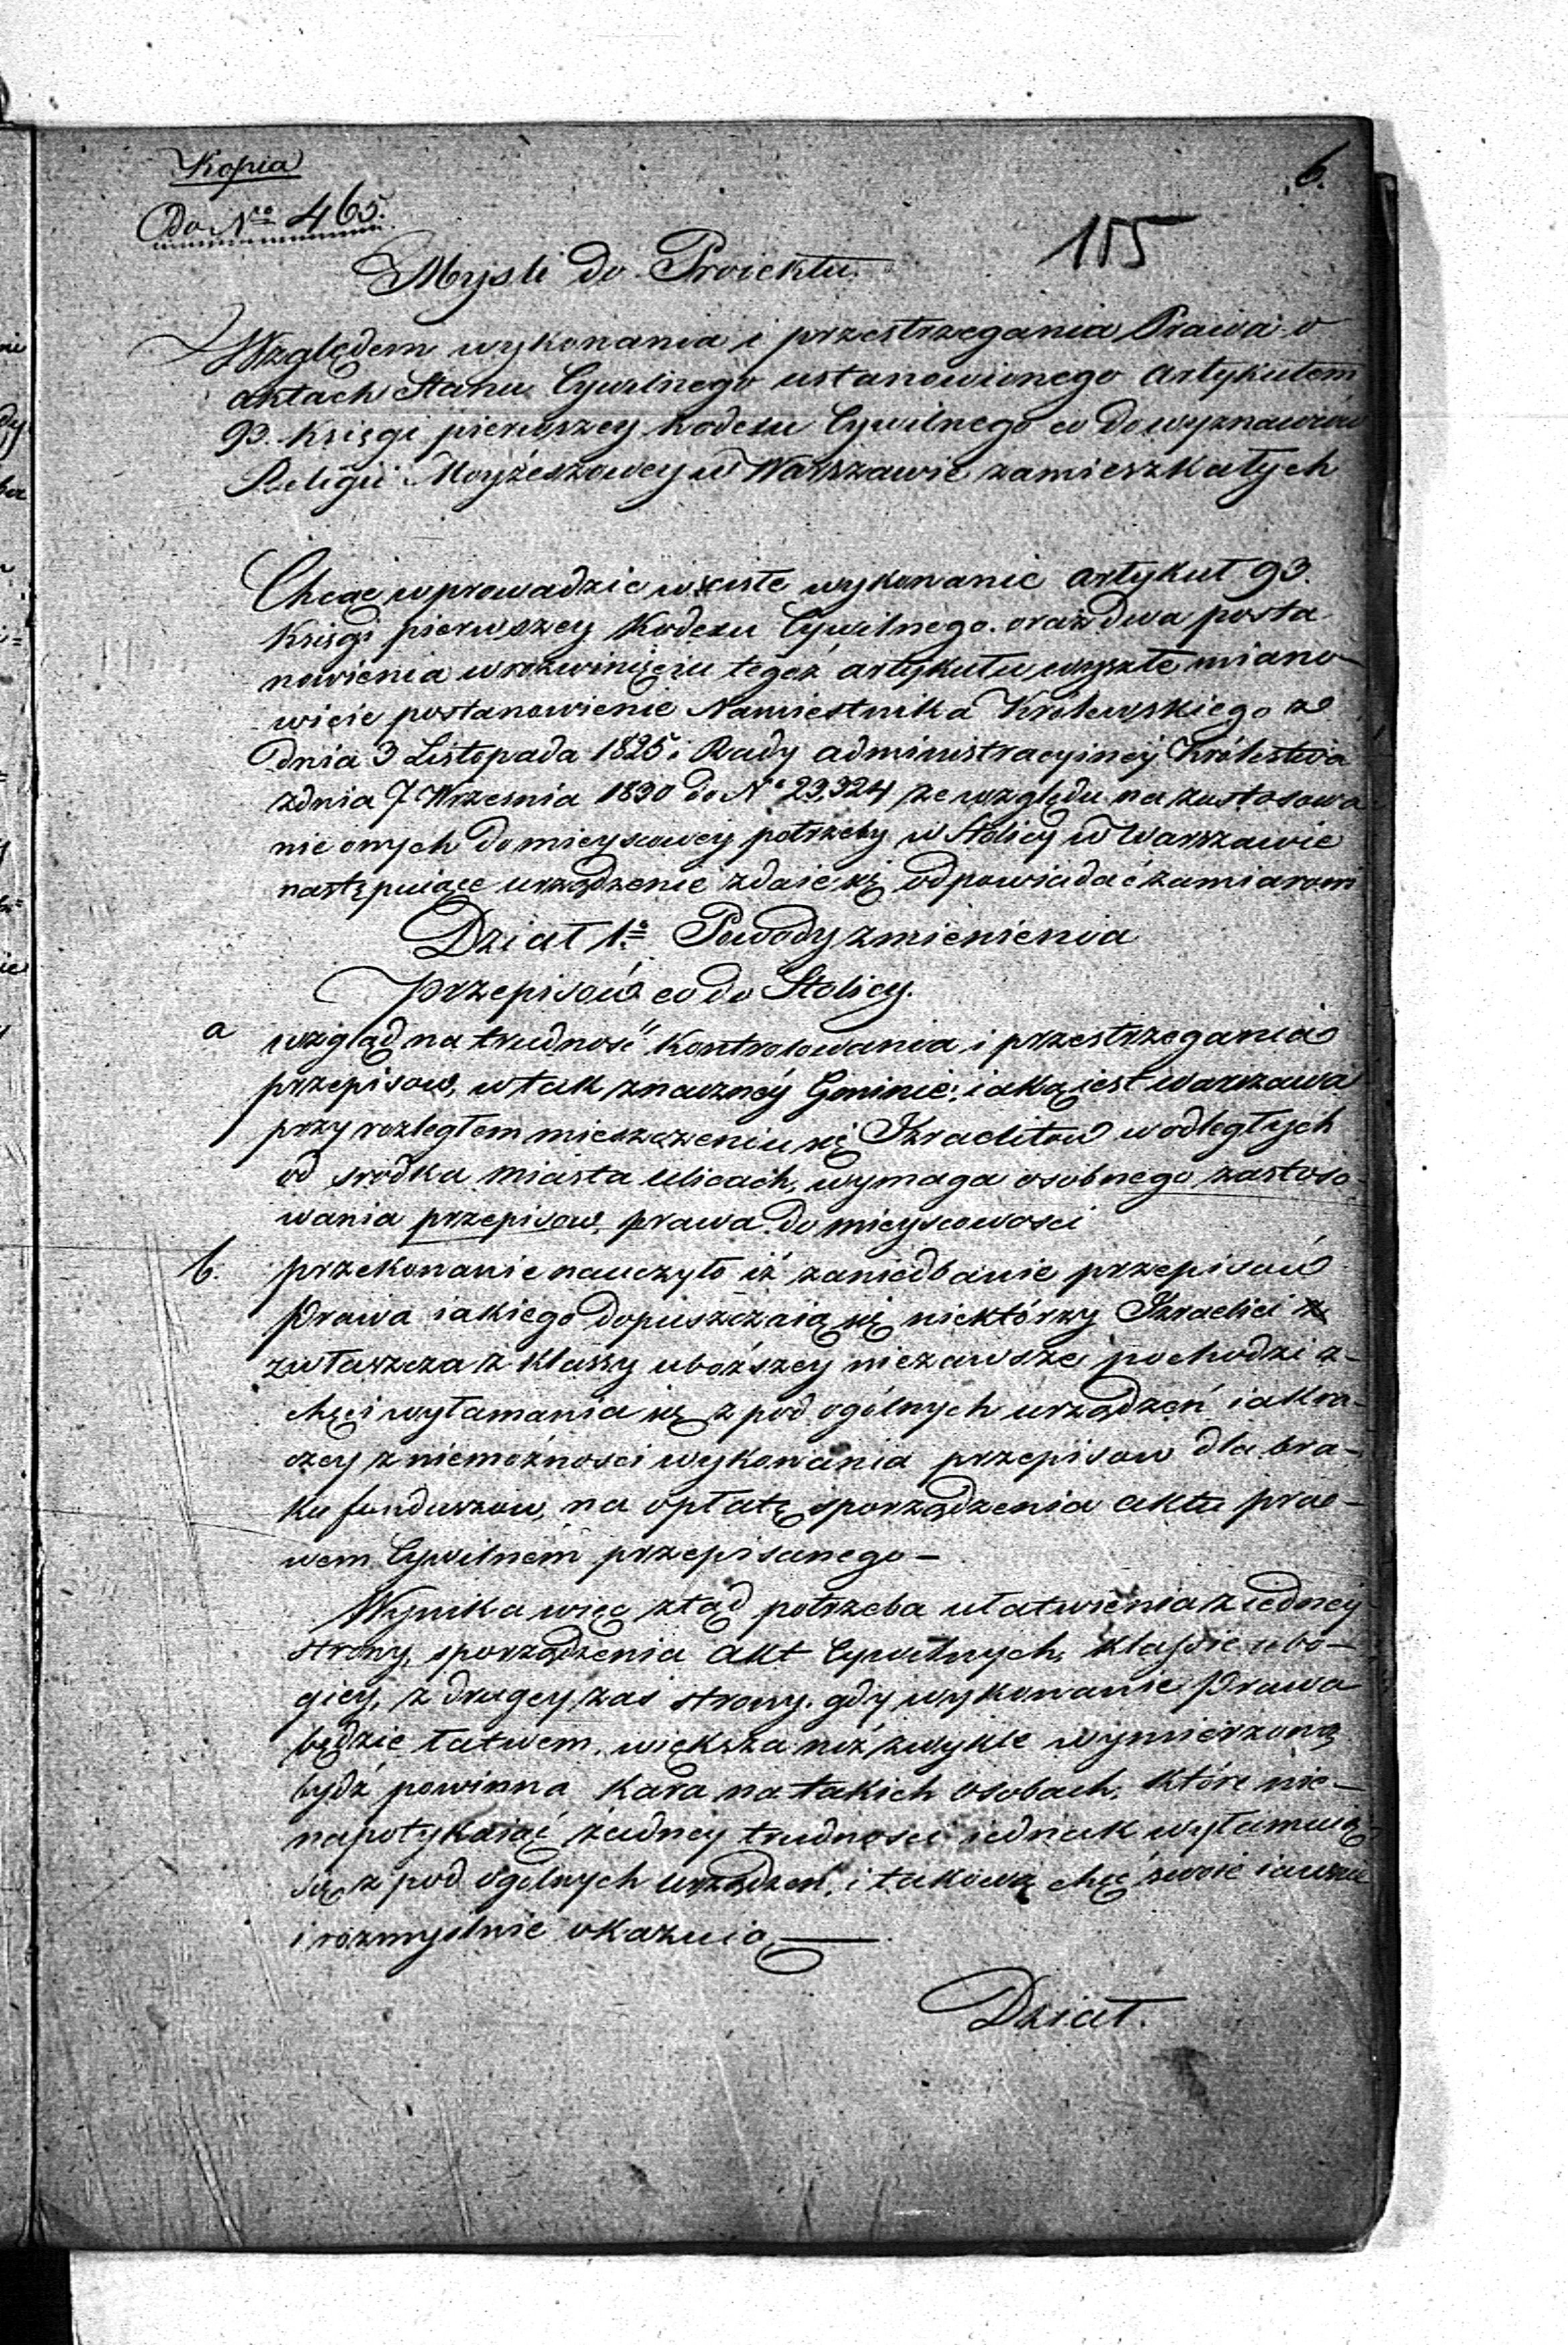 Kopia
do Nro 465.
6.
115
Myśli do Proiektu.
Względem wykonania i przestrzegania Prawa o
aktach Stanu Cywilnego ustanowionego artykułem
93. Księgi pierwszey Kodexu Cywilnego co do wyznawców
Religii Moyżeszowey w Warszawie zamieszkałych
Chcąc wprowadzić w ścisłe wykonanie artykuł 93.
Księgi pierwszey Kodexu Cywilnego. oraz dwa posta
nowienia w rozwinięciu tegoż artykułu wyszłe miano-
wicie postanowienie Namiestnika Królewskiego ze
dnia 3 Listopada 1825 i Rady administracyjnej Królestwa
z dnia 7 Września 1830 do No 23,324 ze względu na zastosowa
nie onych do mieyscowey potrzeby w Stolicy w Warszawie
następuiące urządzenie zdaie się odpowiadać zamiarom
Dział 1o. Powody zmienienia
przepisów co do Stolicy.
a wzgląd na trudność kontrolowania i przestrzegania
przepisow, w tak znaczney Gminie, iaką iest Warszawa
przy rozległem mieszczeniu się Izraelitow w odległych
od srodka miasta ulicach, wymaga osobnego zastoso-
wania przepisow, prawa do mieyscowosci
b. przekonanie nauczyło iż zaniedbanie przepisów
Prawa iakiego dopuszczaią się niektórzy Izraelici
zwłaszcza z klassy uboższey niezawsze pochodzi z-
chęci wyłamania się z pod ogólnych urządzeń iak ra-
czey z niemożnosci wykonania przepisow dla bra-
ku funduszow, na opłatę sporządzenia aktu pra-
wem Cywilnem przepisanego -
Wynika więc ztąd potrzeba ułatwienia z iedney
strony, sporządzenia akt Cywilnych, klassie ubo-
giey, z drugey zas strony. gdy wykonanie Prawa
będzie łatwem, większa niż zwykle wymierzoną
bydź powinna kara na takich osobach, które nie-
napotykaiąć żadney trudnosci iednak wyłamuią
się z pod ogólnych urządzeń, i takową chęć swoię iawnie
i rozmyślnie okazuią —
Dział.